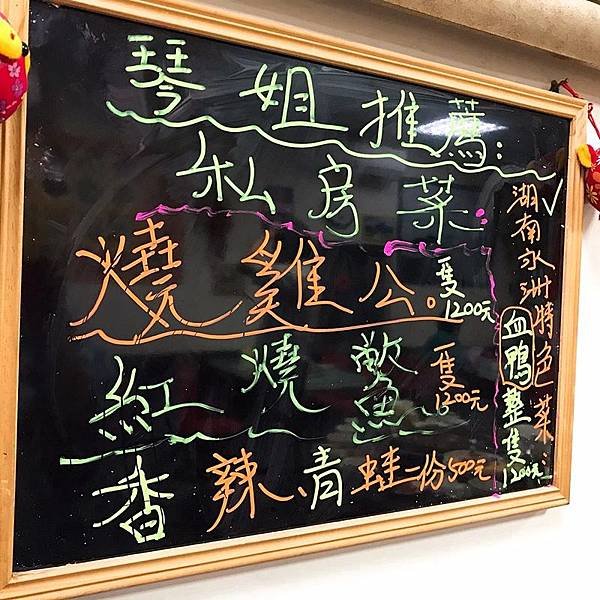 琴姐推薦:
私房菜:
燒雞公。隻1200元
紅燒鱉隻1300元
香辣、青蛙一份500元
湖南永洲特色菜:
血鴨整隻1200元